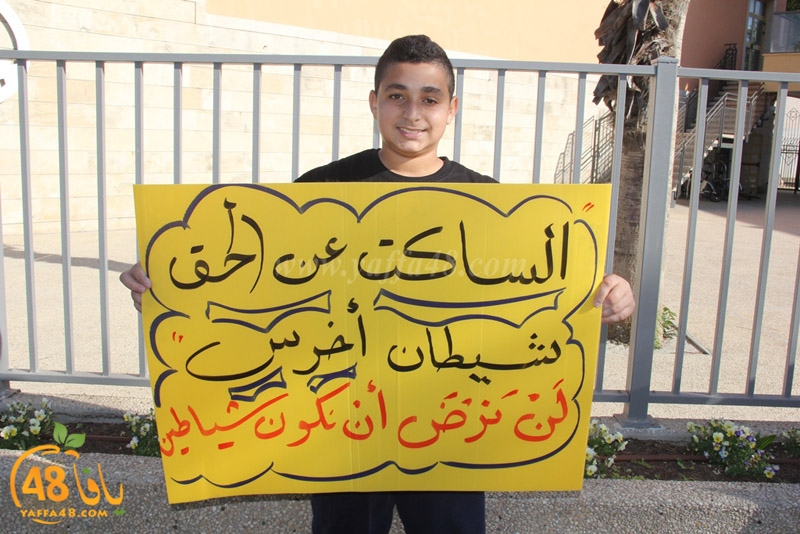 "الساكت عن الحق
شيطان أخرس"
لَنْ نَرْضَ أن نكون شياطين
www.yaffa48.com
يافا 48
YAFFA48.COM